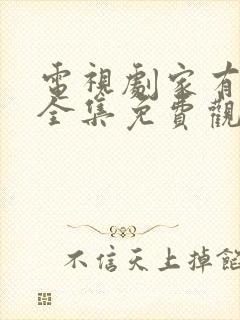 電視劇家有
全集免費觀
不信天上掉餡